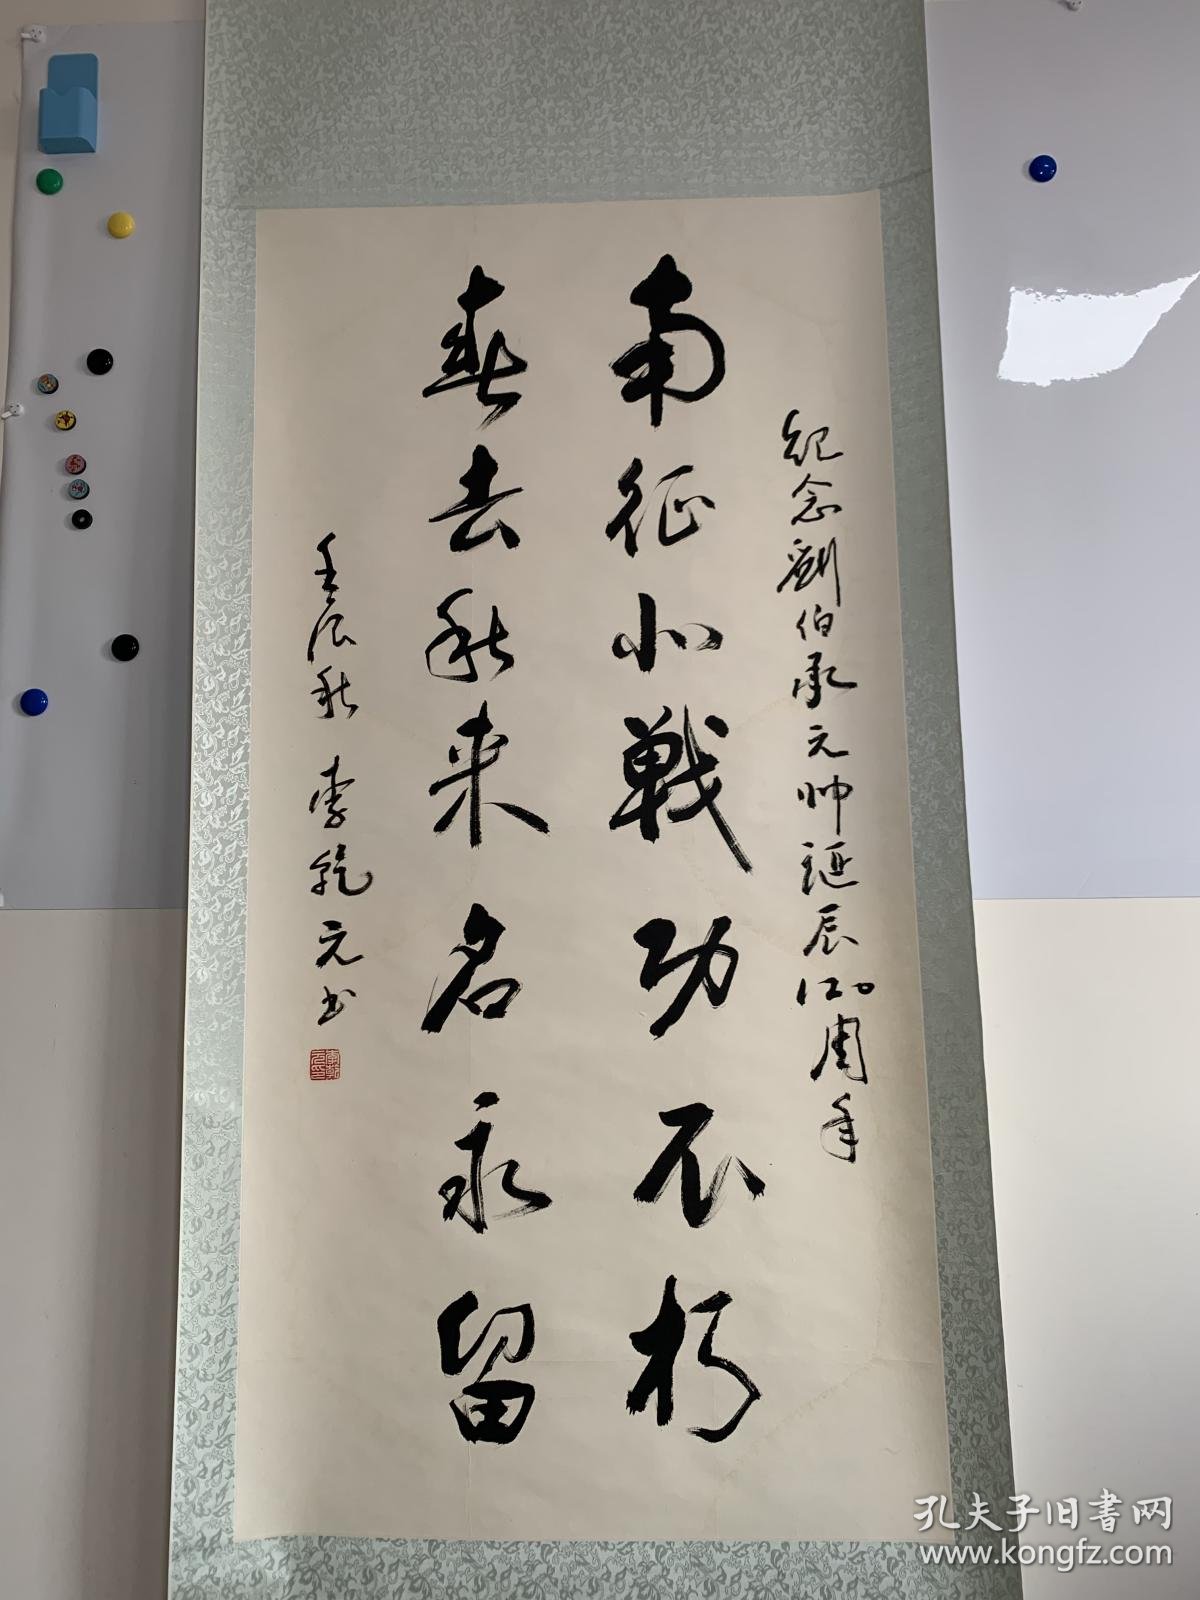 纪念劉伯承元帅诞辰120周年
南征北戰功不朽
春去秋来名永留
壬辰秋 李乾元书
李乾元印
孔夫子旧書网
www.kongfz.com